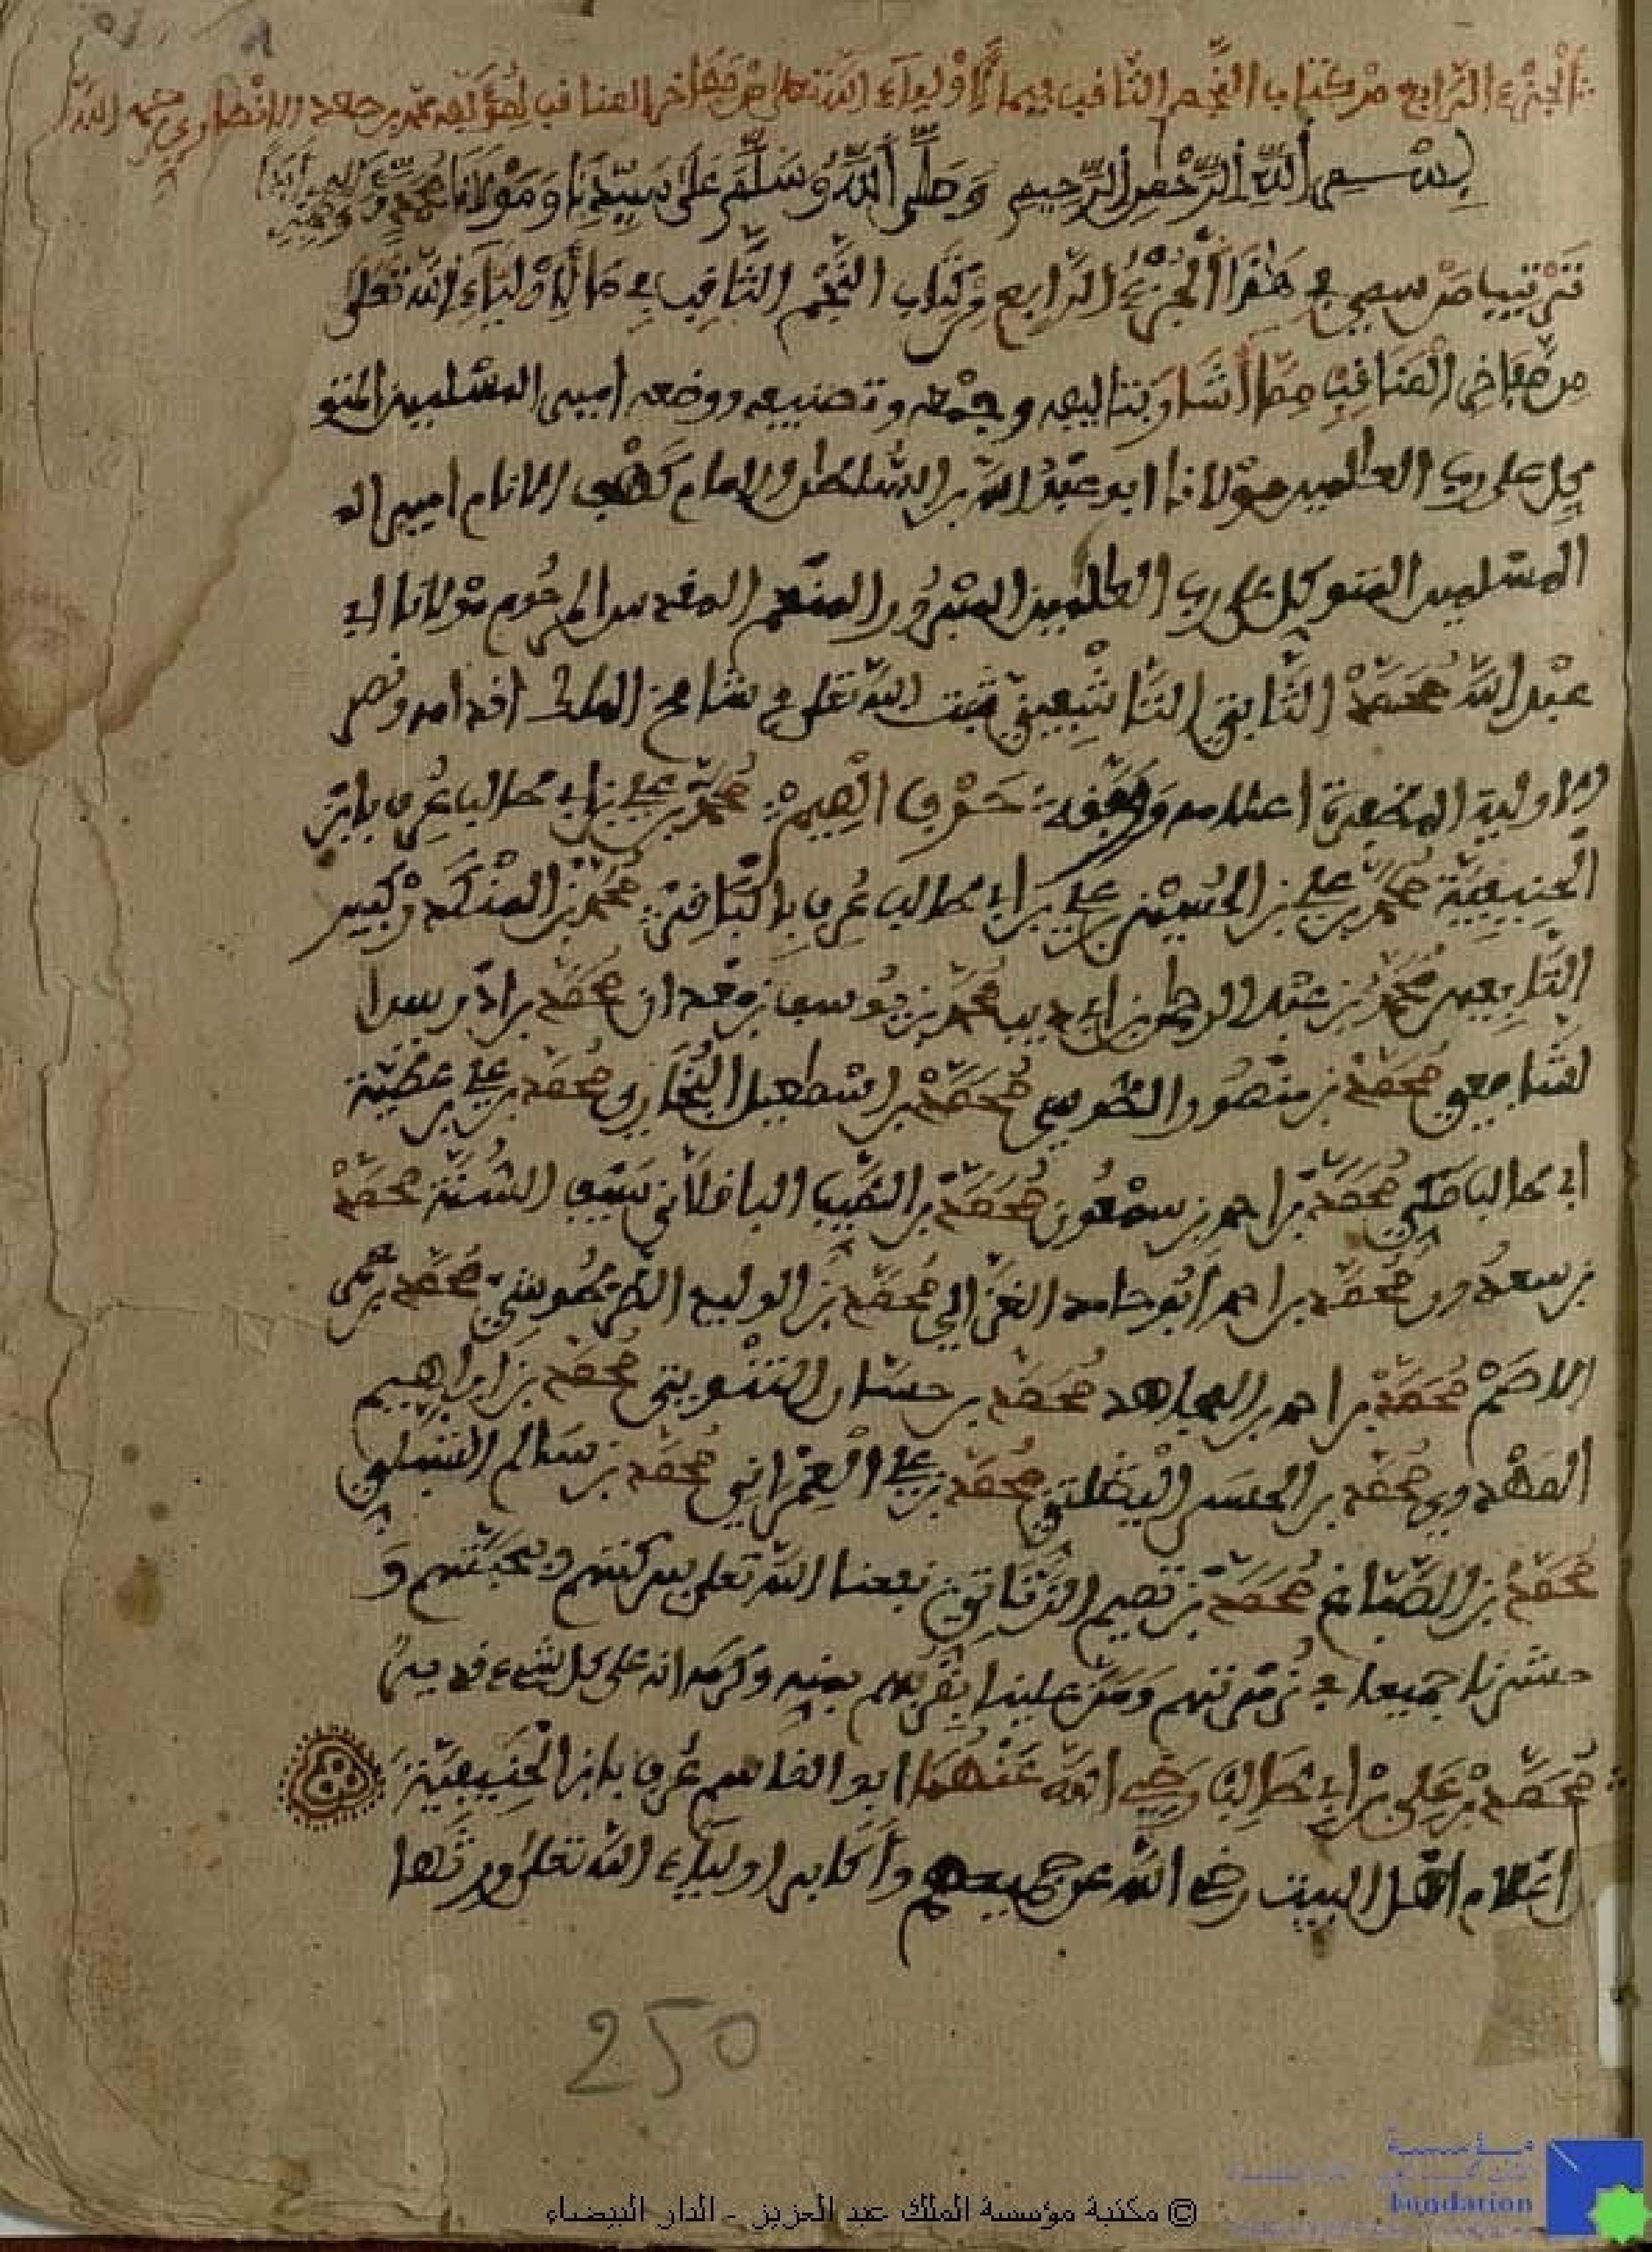 الجزء الرابع من كتاب النجم الثاقب فيما لأولياء الله تعالى من مفاخر المناقب لمؤلفه محمد بن صعد الانصاري رحمه الله
بسم الله الرحمن الرحيم وصلى الله وسلم على سيدنا ومولانا محمد وعلى اله وصحبه ابدا
ترتيب من سمي في هذا الجزء الرابع من كتاب النجم الثاقب في ما لاولياء الله تعلى
من مفاخر المناقب مما أشار بتاليفه وجمعه وتصنيفه ووضعه امير المسلمين المتو
كل على رب العلمين مولانا ابو عبد الله بن السلطان الامام كهف الانام امير الم
المسلمين المتوكل على رب العلمين المبرور المنعم المقدس المرحوم مولانا ابي
عبد الله محمد الثابتي التاشفيني ثبت الله تعلى في شامخ الملك اقدامه ونصر
والاولية المظفرة اعلامه ووفقه حرف الميم محمد بن علي بن ابي طالب عرف بابن
الحنيفية محمد بن علي بن الحسين بن علي بن ابي طالب عرف بالباقر محمد بن المنكدر كبير
التابعين محمد بن عبد الرحمن بن ابي ذيب محمد بن يوسف بن معدان محمد بن ادريس ا
لشافعي محمد بن منصور الطوسي محمد بن اسمعيل البخاري محمد بن علي بن عطية
ابي طالب المكي محمد بن احمد بن سمعون محمد بن الطيب الباقلاني سيف السنة محمد
بن سعدون محمد بن احمد ابو حامد الغزالي محمد بن الوليد الطرطوشي محمد بن عمر
الاصم محمد بن احمد بن المجاهد محمد بن حسان التنويتي محمد بن ابراهيم
المهدوي محمد بن الحسن اليصلتي محمد بن علي العمراني محمد بن سالم الشبلي
محمد بن الصباغ محمد بن تميم الزناتي نفعنا الله تعلى ببركتهم وبمحبتهم و
حشرنا جميعا في زمرتهم ومن علينا بقربهم بمنه وكرمه انه على كل شيء قدير
محمد بن علي بن ابي طالب رضي الله عنهما ابو القاسم عرف بابن الحنيفية من
اعلام اهل البيت رضي الله عن جميعهم وأكابر اولياء الله تعلى ورثها
250
© مكتبة مؤسسة الملك عبد العزيز - الدار البيضاء
مؤسسة
Fundation